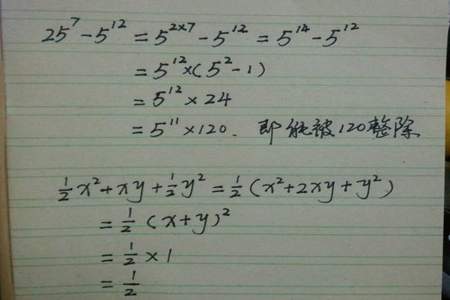 25⁷-5¹²=5²ˣ⁷-5¹²=5¹⁴-5¹²
=5¹²×(5²-1)
=5¹²×24
=5¹¹×120. 即能被120整除
½x²+xy+½y²=½(x²+2xy+y²)
=½(x+y)²
=½×1
=½